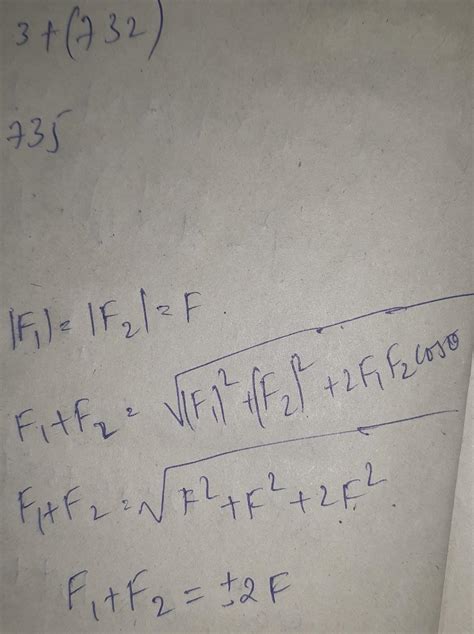 3+(732)
735
|F₁| = |F₂| = F
F₁+F₂ = √(F₁)²+(F₂)²+2F₁F₂cosθ
F₁+F₂ = √F²+F²+2F²
F₁+F₂ = ±2F